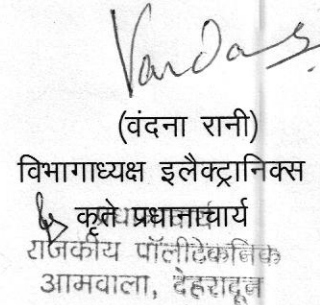 Vandana
(वंदना रानी)
विभागाध्यक्ष इलैक्ट्रानिक्स
कृते प्रधानाचार्य
राजकीय पॉलीटेकनिक
आमवाला, देहरादून